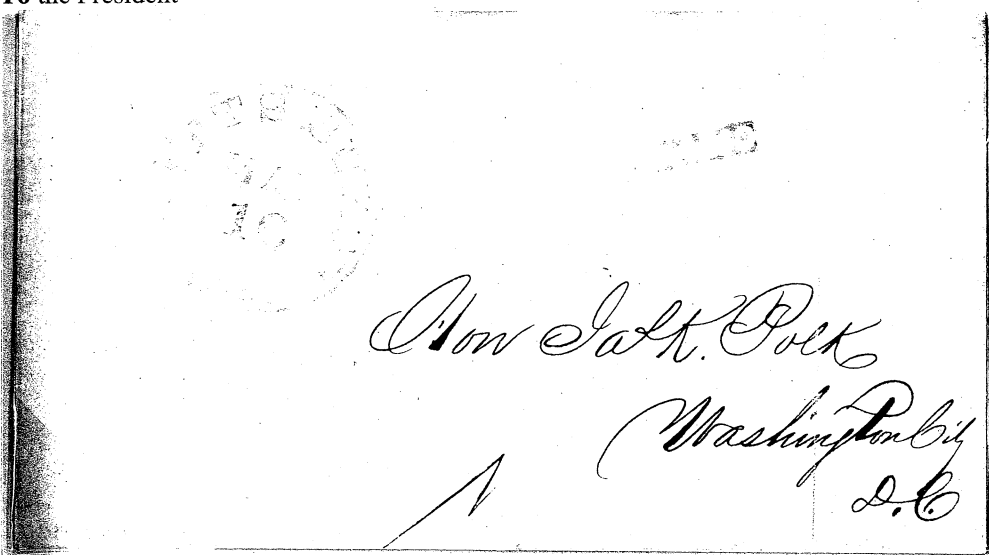 To the President
10
Hon Jas K. Polk
Washington City
D.C.